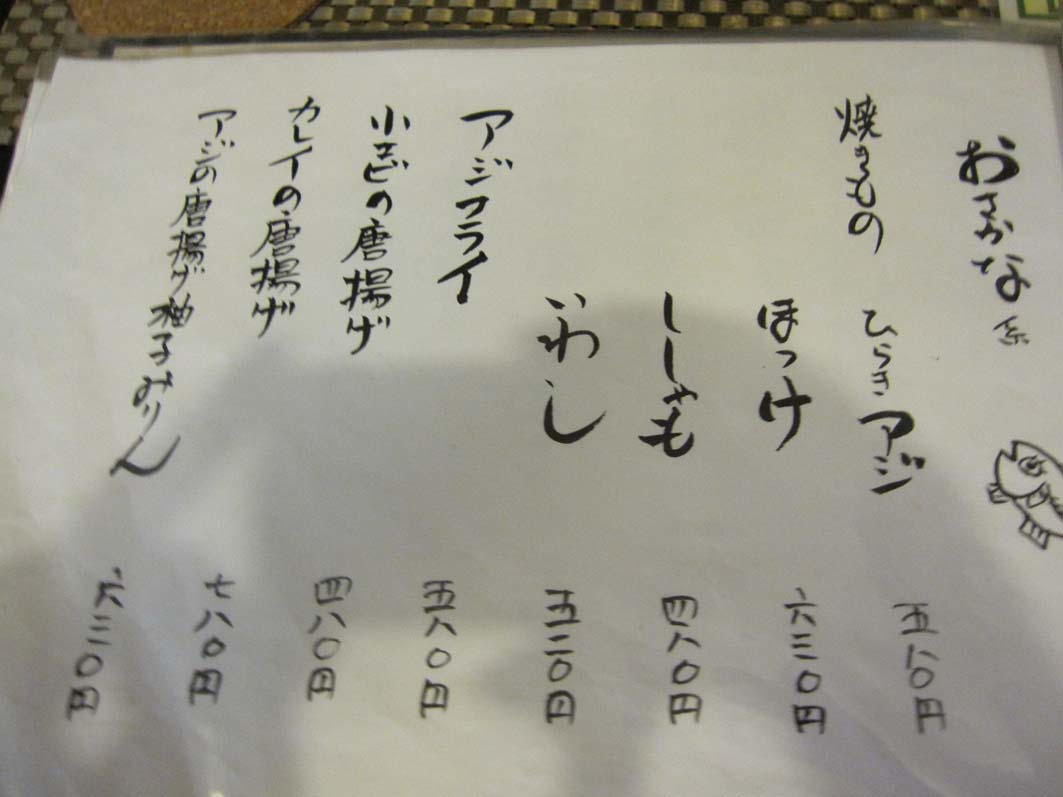 おさかな系
焼きもの ひらきアジ 五八〇円
ほっけ 六三〇円
ししゃも 四八〇円
いわし 五二〇円
アジフライ 五八〇円
小エビの唐揚げ 四八〇円
カレイの唐揚げ 七八〇円
アジの唐揚げ柚子みりん 六三〇円